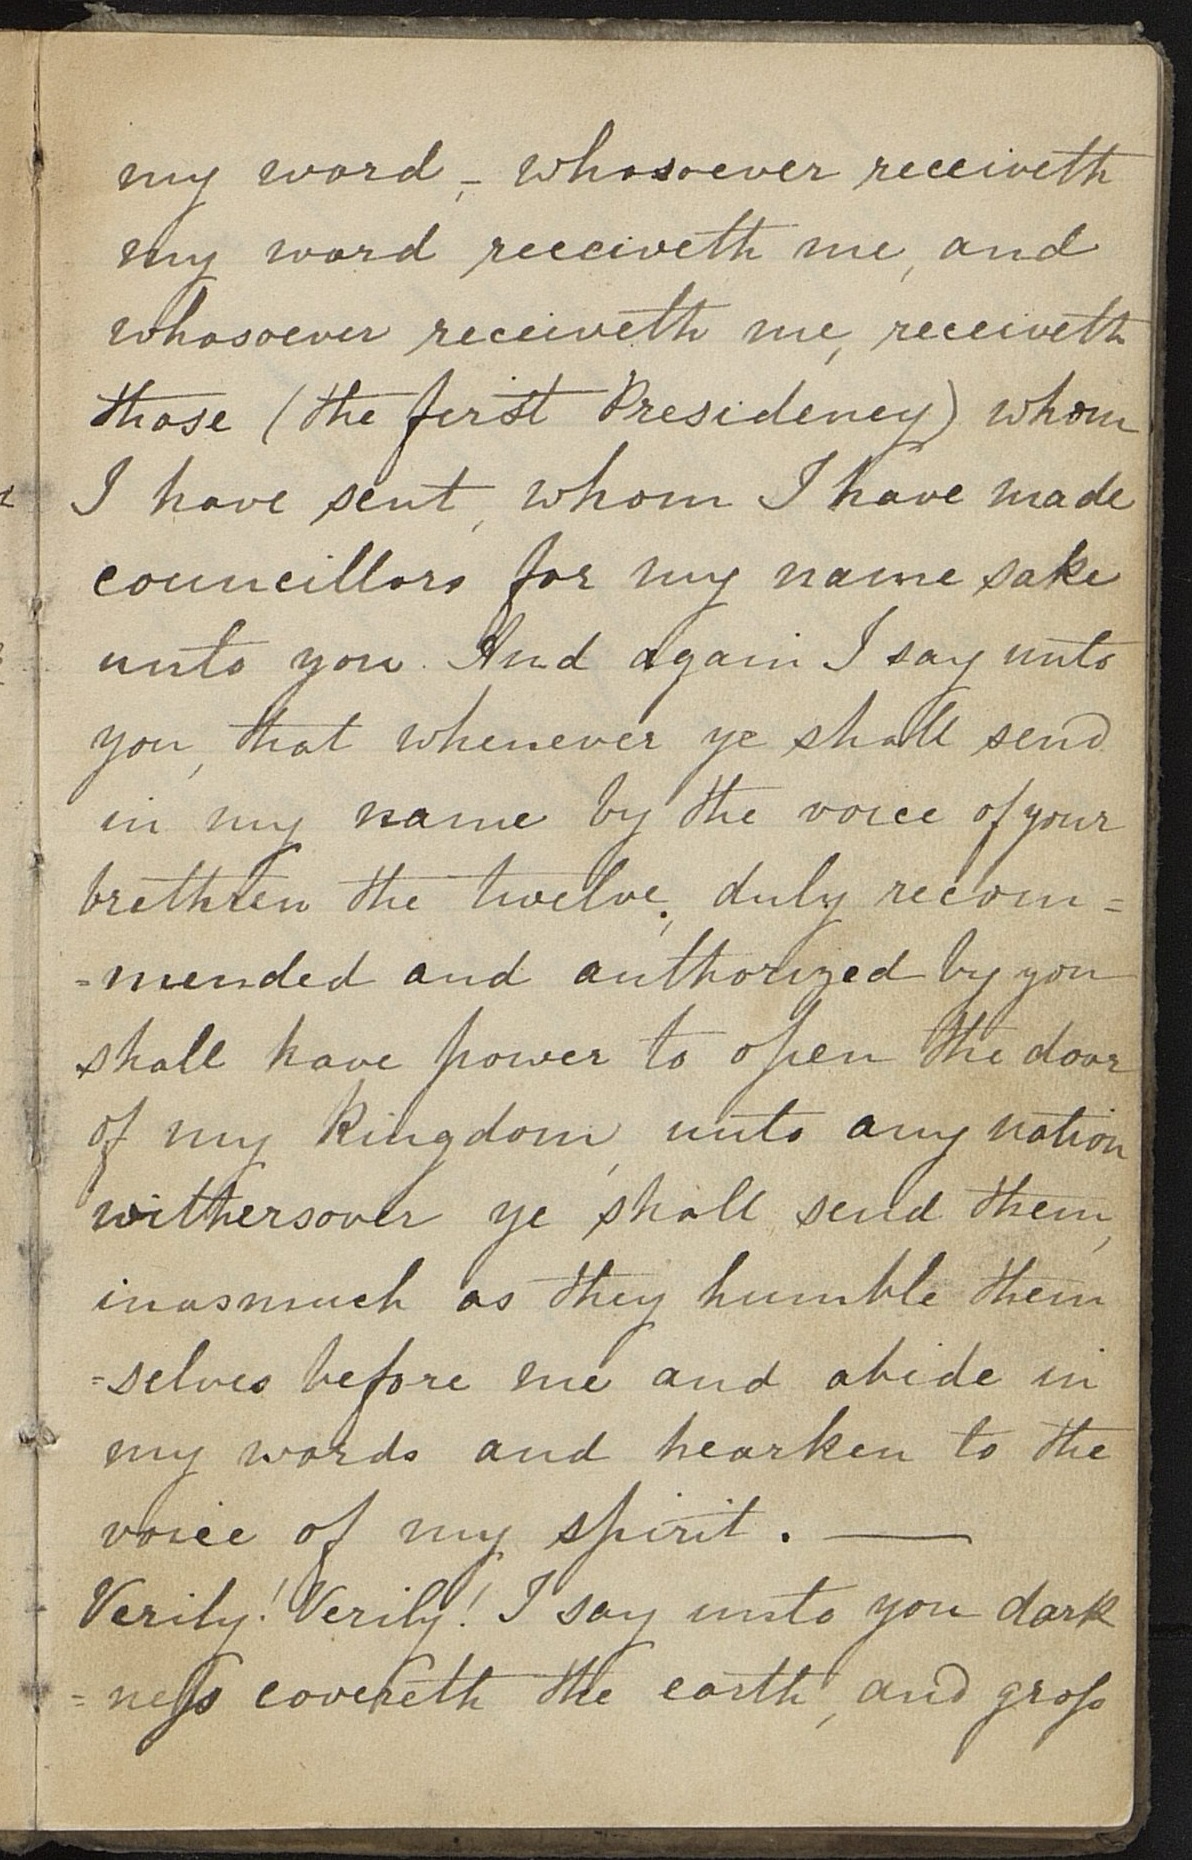 my word,- whosoever receiveth
my word receiveth me, and
whosoever receiveth me, receiveth
those (the first Presidency) whom
I have sent, whom I have made
councillors for my name sake
unto you. And again I say unto
you, that whenever ye shall send
in my name by the voice of your
brethren the twelve, duly recom=
=mended and authorized by you
shall have power to open the door
of my kingdom, unto any nation
withersover ye shall send them,
inasmuch as they humble them
=selves before me and abide in
my words and hearken to the
voice of my spirit. —
Verily! Verily! I say unto you dark
=ness covereth the earth, and gross